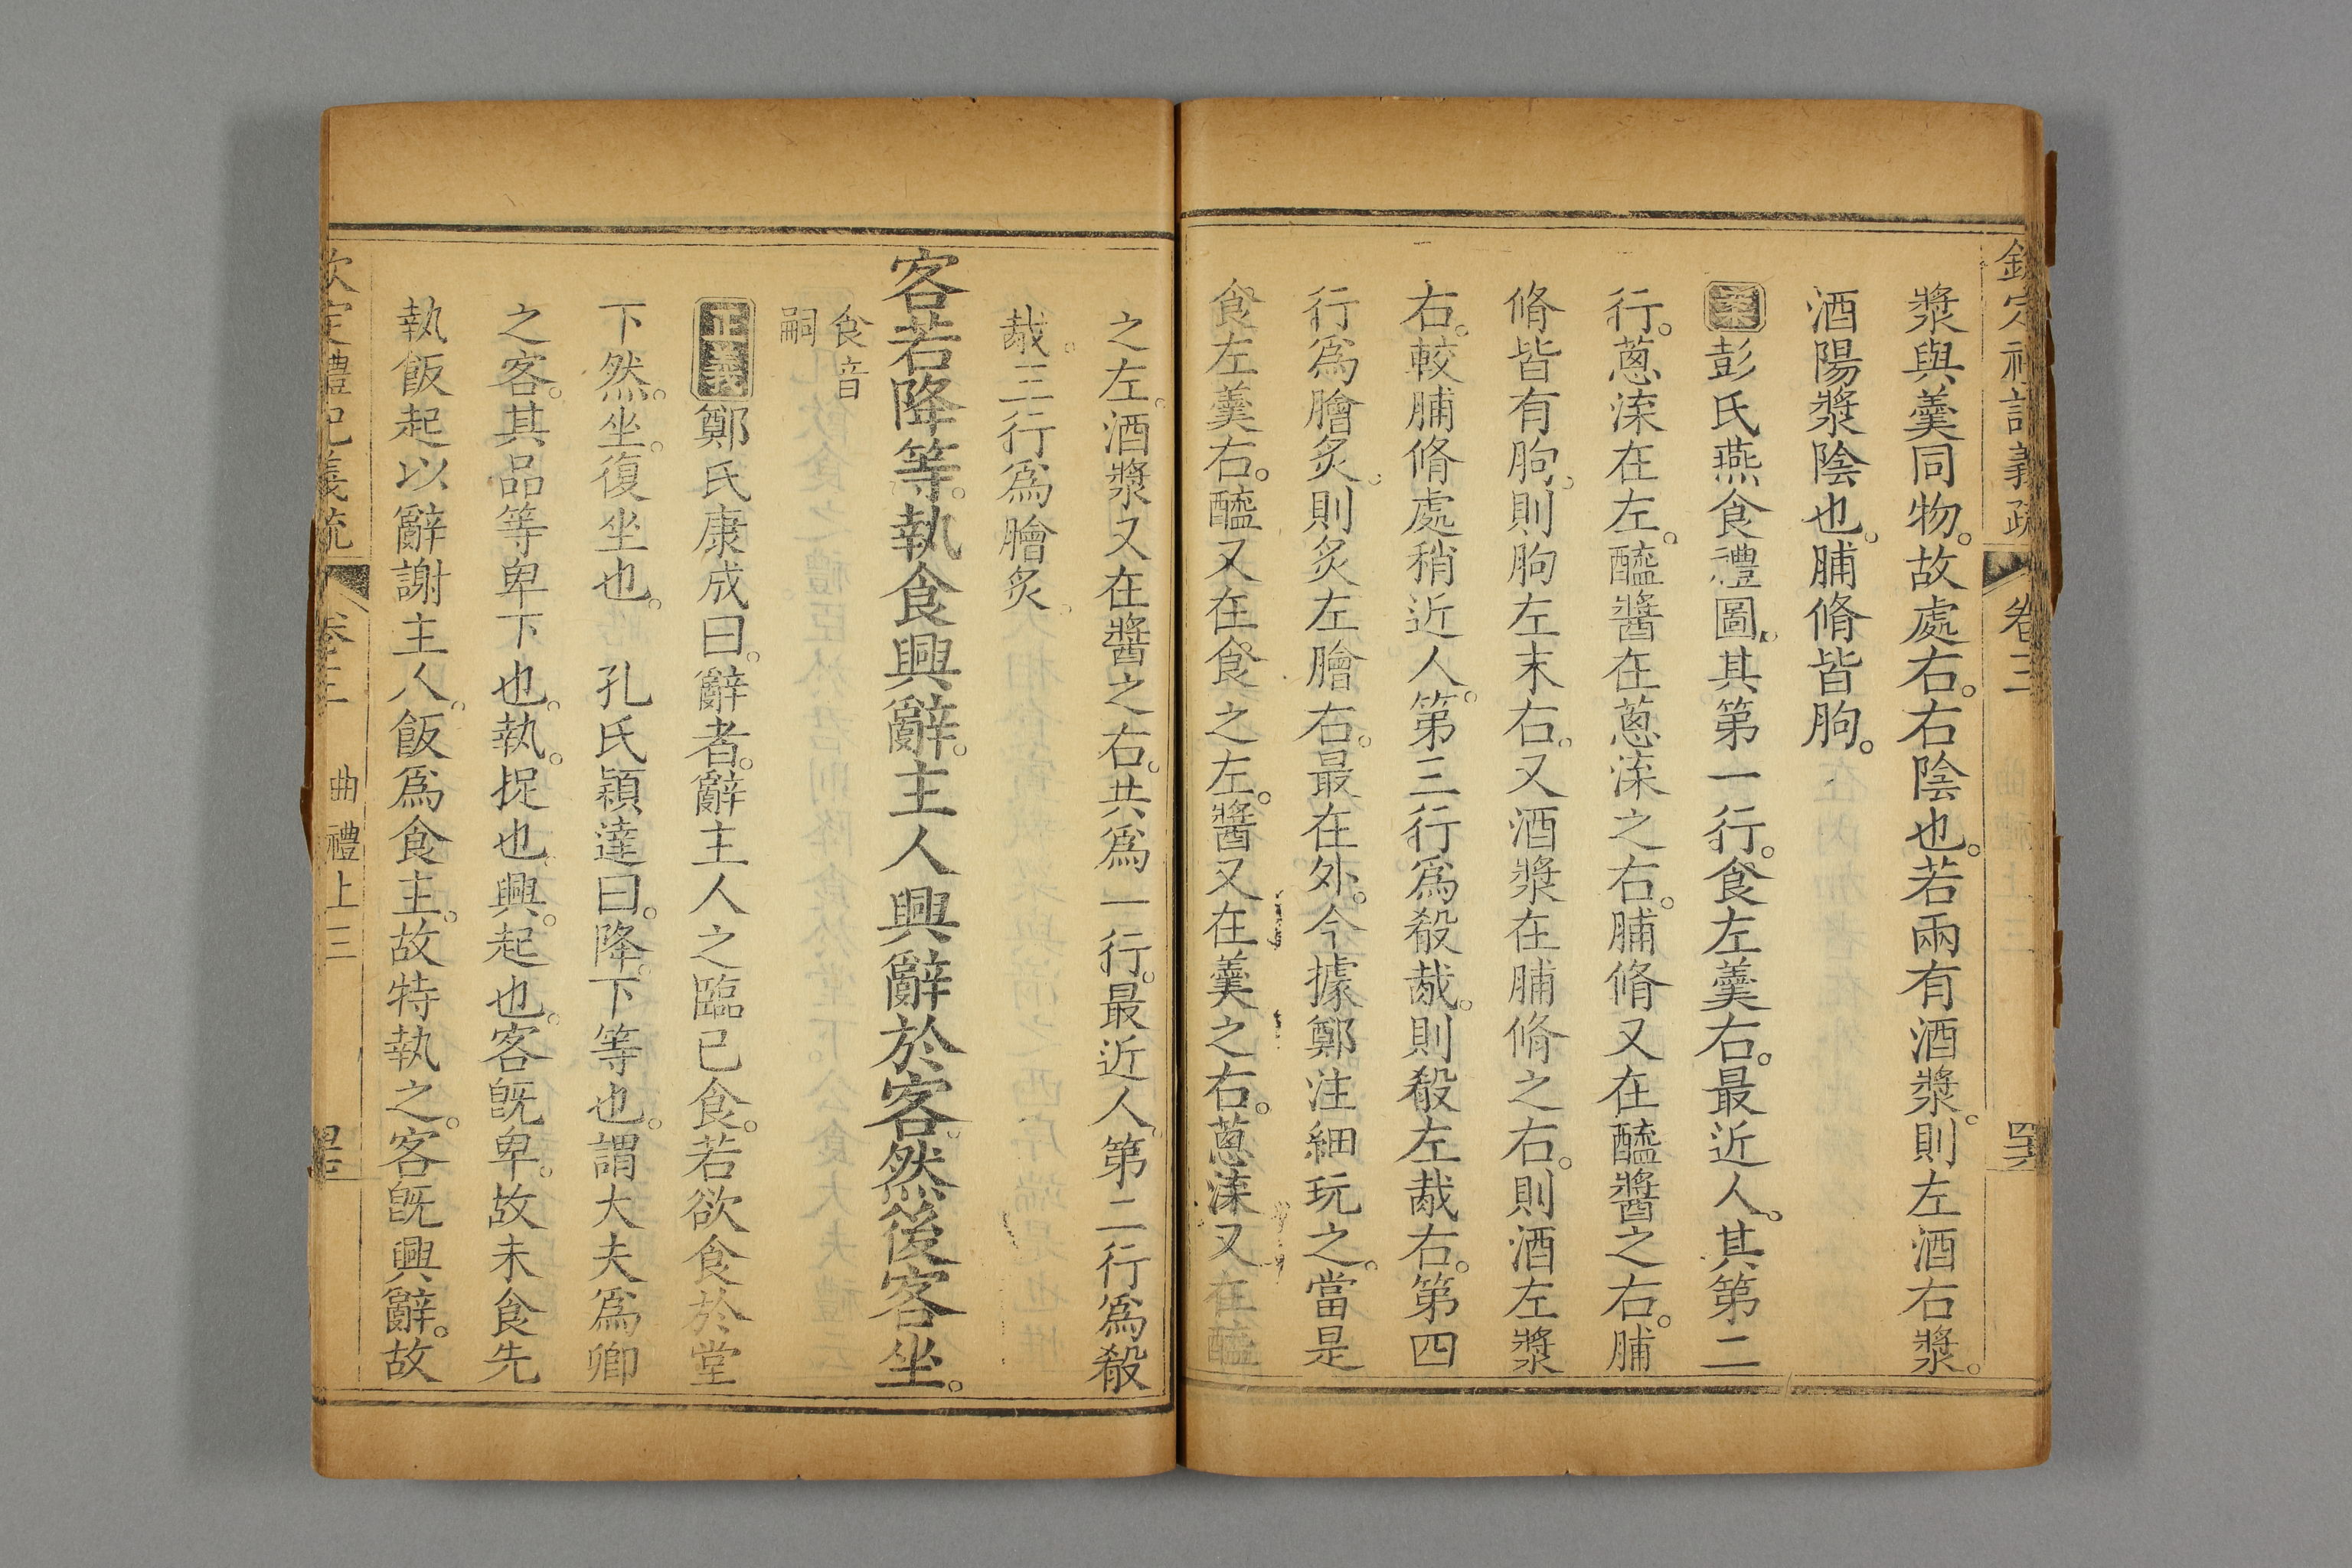 欽定禮記義疏 卷三 曲禮上三
漿與羹同物。故處右。右陰也。若兩有酒漿。則左酒右漿。
酒陽漿陰也。脯脩皆朐。
案彭氏燕食禮圖。其第一行。食左羹右。最近人。其第二
行。蔥渿在左。醯醬在蔥渿之右。脯脩又在醯醬之右。脯
脩皆有朐。則朐左末右。又酒漿在脯脩之右。則酒左漿
右。較脯脩處稍近人。第三行爲殽胾。則殽左胾右。第四
行爲膾炙。則炙左膾右。最在外。今據鄭注細玩之。當是
食左羹右。醯又在食之左。醬又在羹之右。蔥渿又在醯
之左。酒漿又在醬之右。共爲一行。最近人。第二行爲殽
胾。三行爲膾炙。
客若降等。執食興辭。主人興辭於客。然後客坐。
食音
嗣
正義鄭氏康成曰。辭者。辭主人之臨已食。若欲食於堂
下然。坐。復坐也。 孔氏穎達曰。降。下等也。謂大夫爲卿
之客。其品等卑下也。執。捉也。興。起也。客旣卑。故未食先
執飯起以辭謝主人。飯爲食主。故特執之。客旣興辭。故
欽定禮記義疏 卷三 曲禮上三